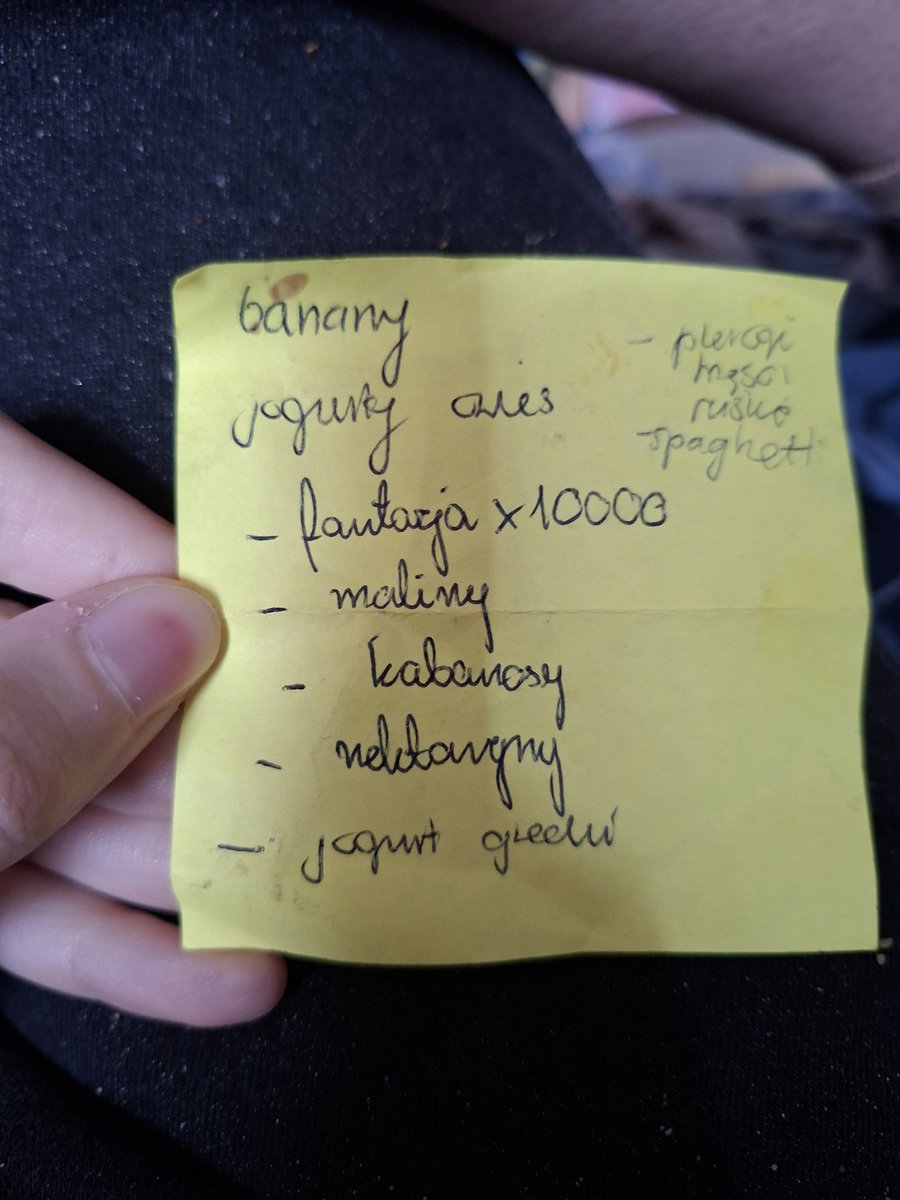 banany
jogurty owies
- fantazja x10000
- maliny
- kabanosy
- nektaryny
- jogurt grecki
- pierogi
ruskie
- spaghetti